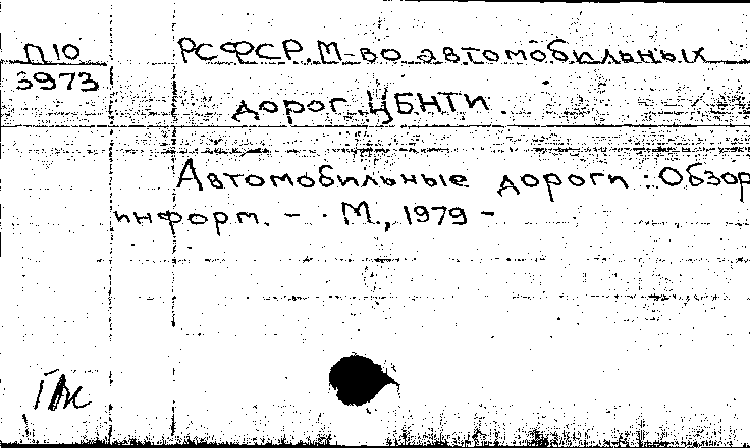 П10
3973
РСФСР. М-во автомобильных
дорог. ЦБНТИ.
Автомобильные дороги: Обзор
информ. - М., 1979 -